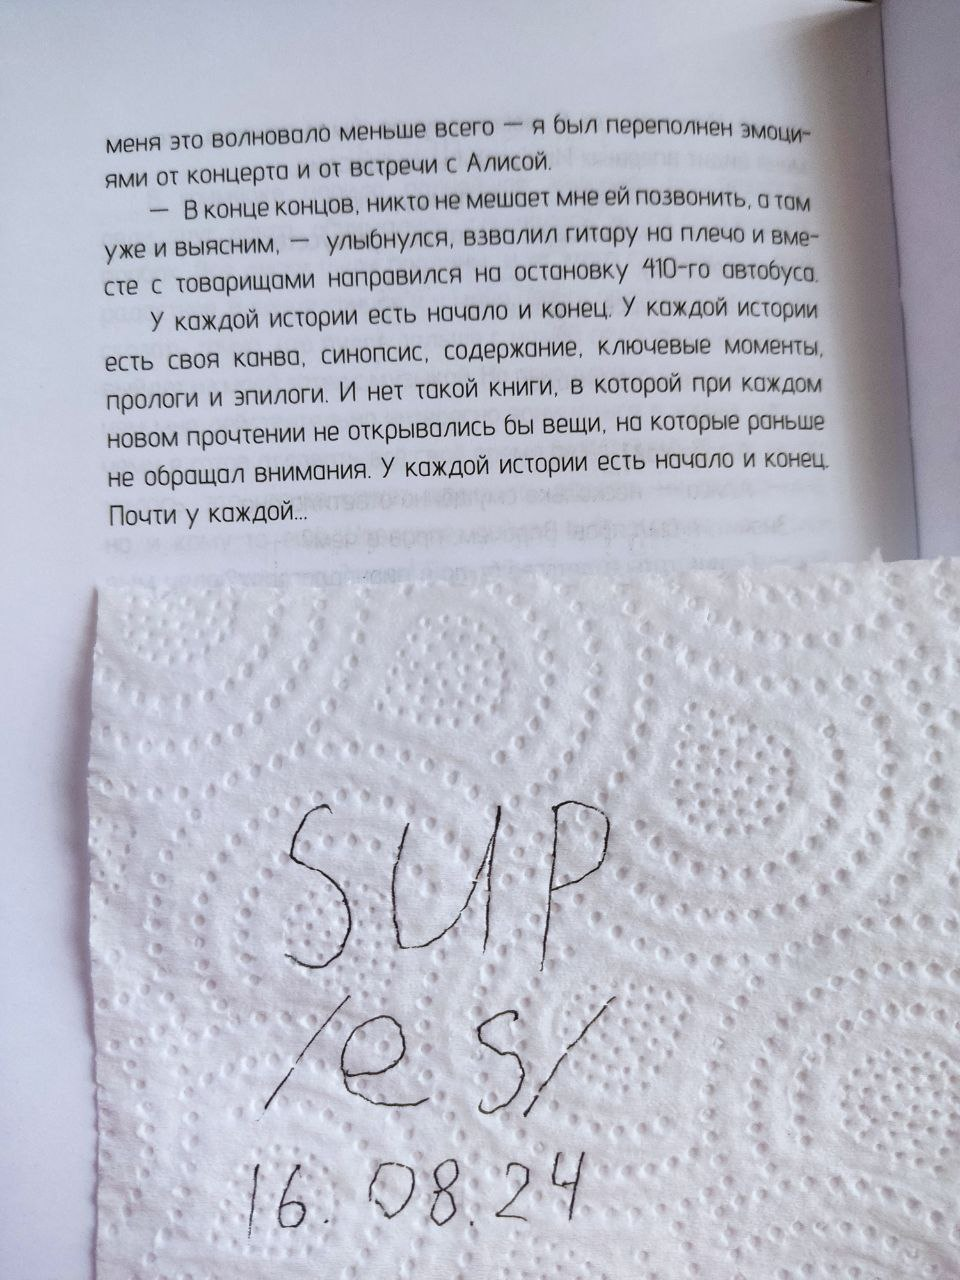 меня это волновало меньше всего — я был переполнен эмоци-
ями от концерта и от встречи с Алисой.
— В конце концов, никто не мешает мне ей позвонить, а там
уже и выясним, — улыбнулся, взвалил гитару на плечо и вме-
сте с товарищами направился на остановку 410-го автобуса.
У каждой истории есть начало и конец. У каждой истории
есть своя канва, синопсис, содержание, ключевые моменты,
прологи и эпилоги. И нет такой книги, в которой при каждом
новом прочтении не открывались бы вещи, на которые раньше
не обращал внимания. У каждой истории есть начало и конец.
Почти у каждой...
SUP
/es/
16.08.24